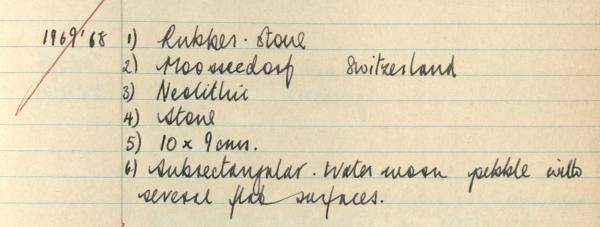 1969'68 1) Rubber. Stone
2) Moosseedorf Switzerland
3) Neolithic
4) Stone
5) 10 x 9 cms.
6) Subrectangular. Water worn pebble with
several flat surfaces.